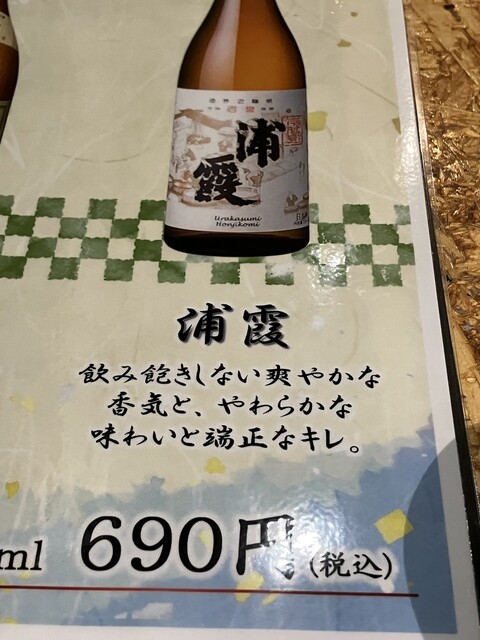 浦
霞
Urakasumi
Honjikomi
浦霞
飲み飽きしない爽やかな
香気と、やわらかな
味わいと端正なキレ。
ml 690円(税込)